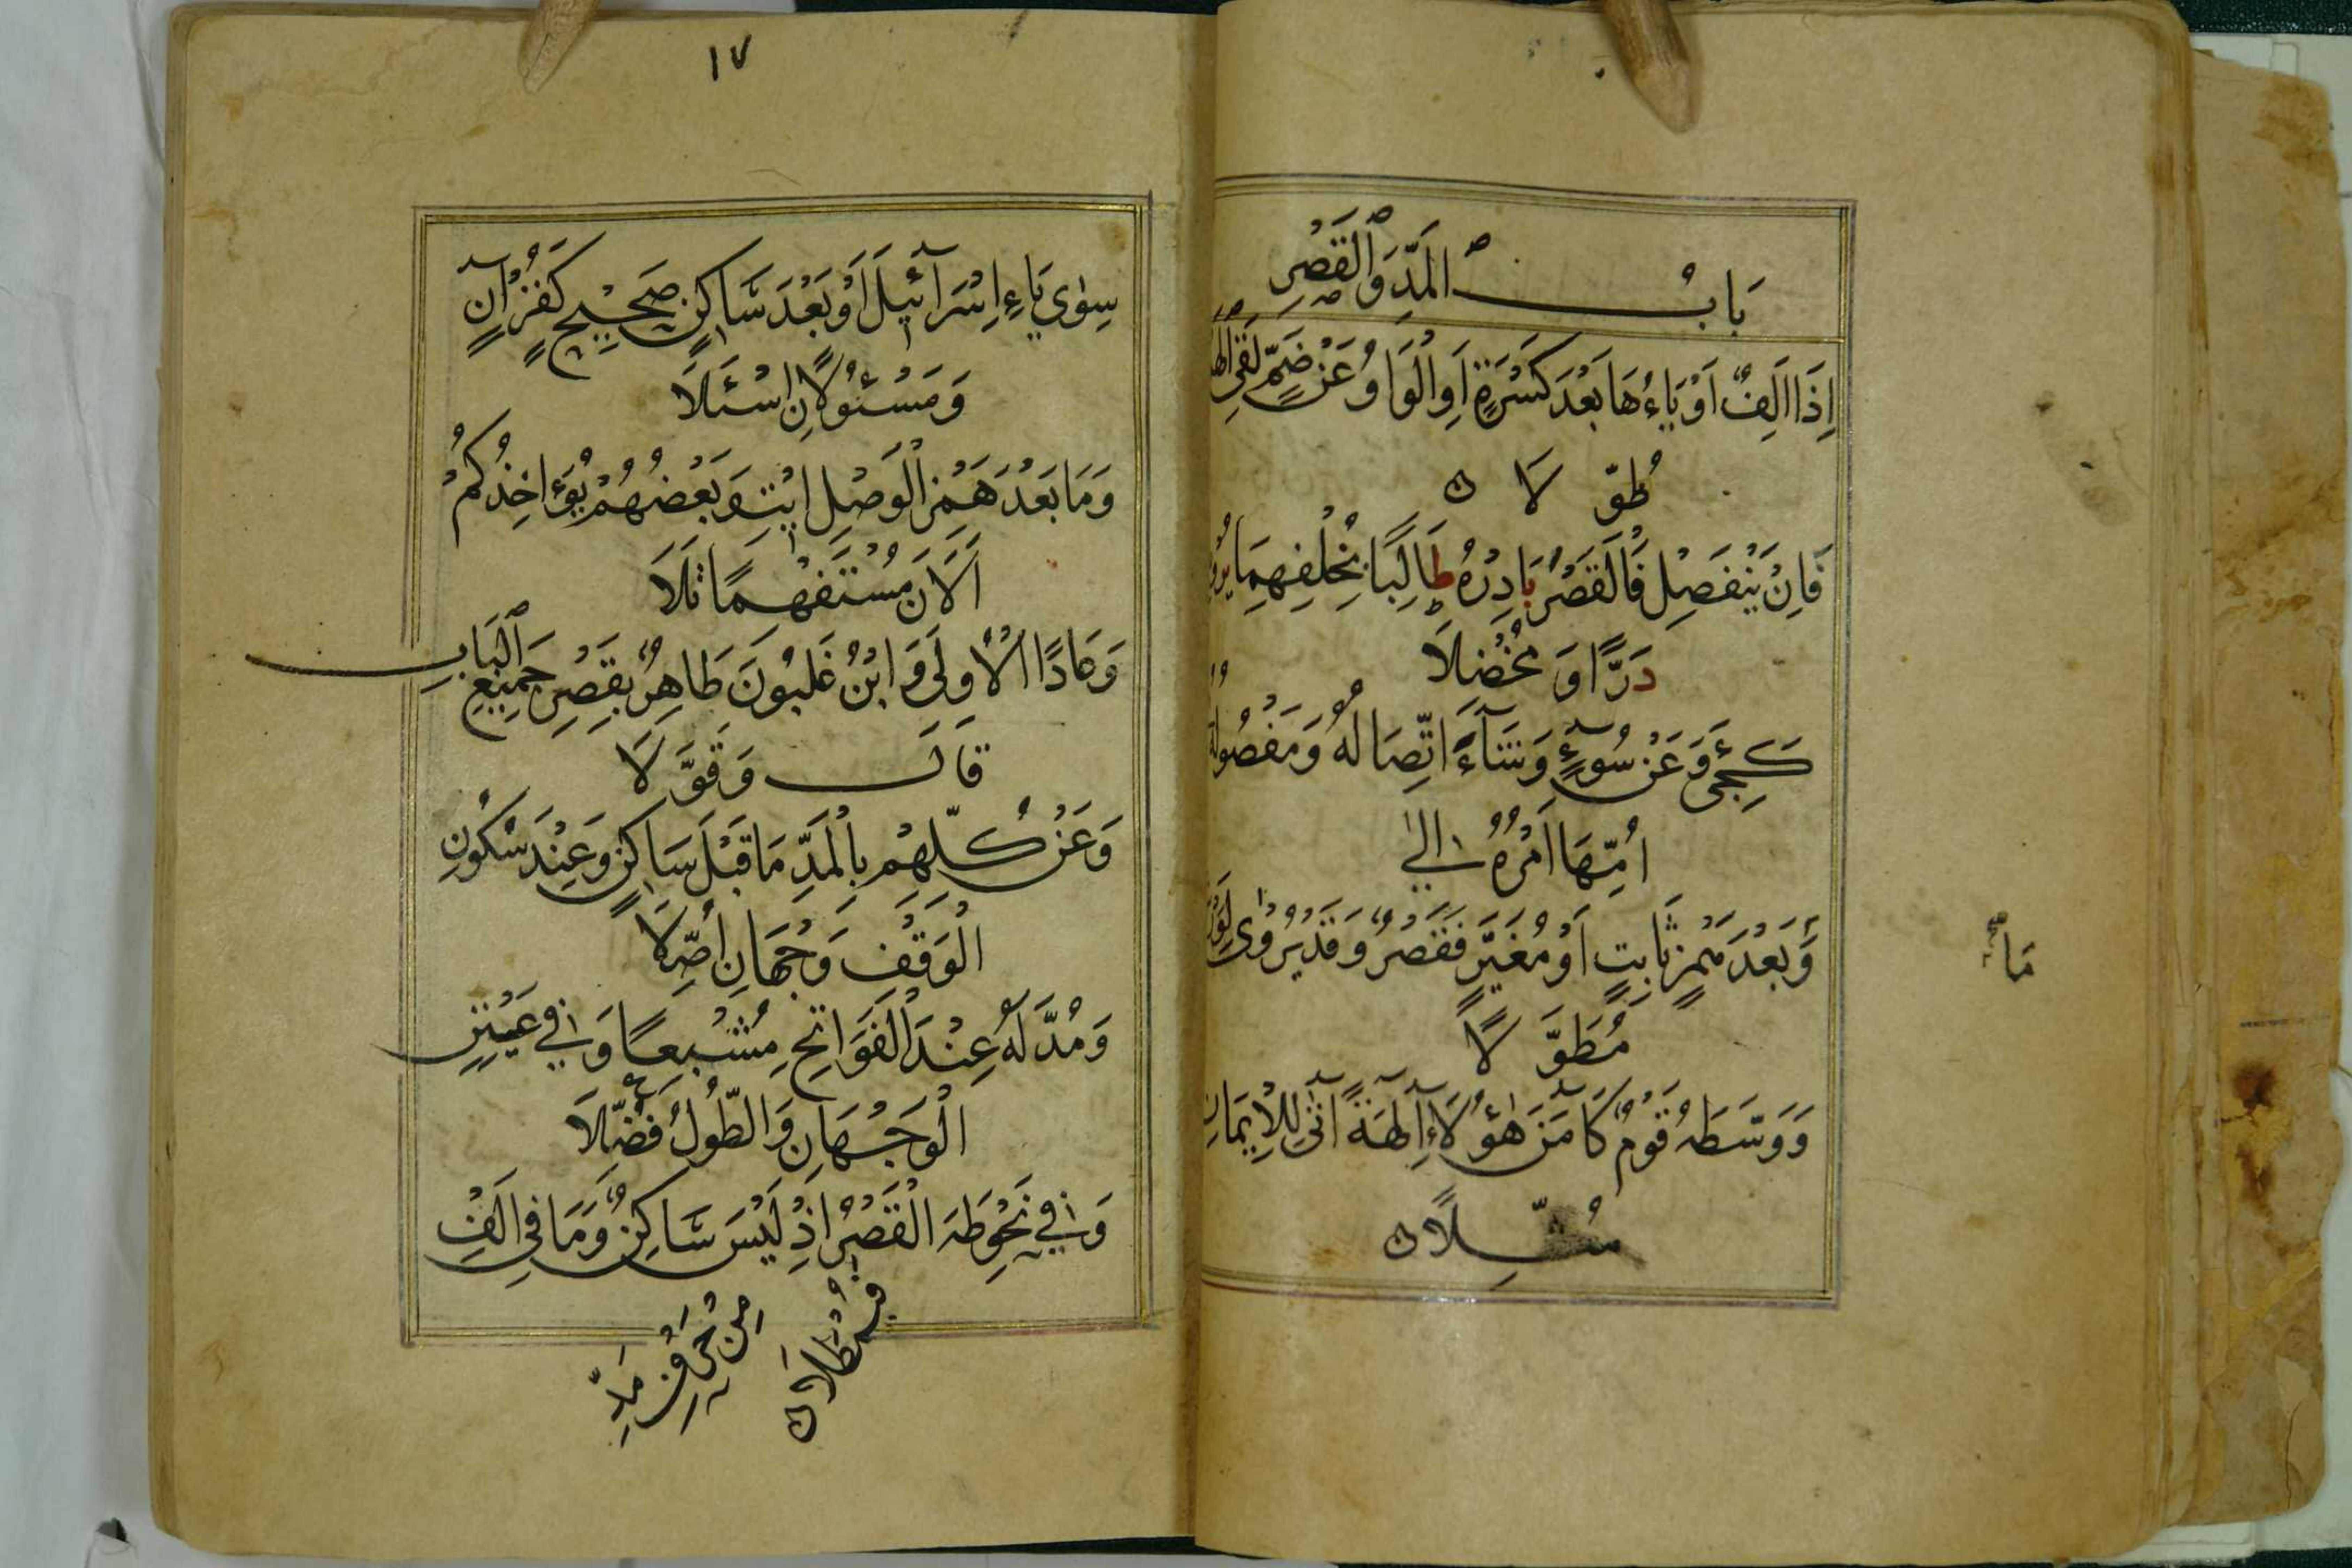 بَابُ الْمَدِّ وَالْقَصْرِ
إِذَا اَلِفٌ اَوْ يَاءُهَا بَعْدَ كَسْرَةٍ اَوِ الْوَاوُ عَنْ ضَمٍّ لَقِى الْهَ
طُوِّلَا
فَاِنْ يَنْفَصِلْ فَالْقَصْرُ بَادِرْهُ طَالِبًا بِخُلْفِهِمَا يُرْوِ
دَرًّا وَ مُخْضَلَا
كَجِىْٓءَ وَعَنْ سُوْٓءٍ وَشَآءَ اتِّصَالُهُ وَمَفْصُولُهُ
اُمِّهَا اَمْرُهُ اِلٰى
مَا
وَبَعْدَ هَمْزٍ ثَابِتٍ اَوْ مُغَيَّرٍ فَقَصْرٌ وَقَدْ يُرْوٰى لِوَرْ
مُطَوَّلَا
وَوَسَّطَهُ قَوْمٌ كَآمَنَ هٰؤُلَاءِ آلِهَةً آتٰى لِلْاِيْمَانِ
مُثِّلَا
١٧
سِوٰى يَاءِ اِسْرَآئِيْلَ اَوْ بَعْدَ سَاكِنٍ صَحِيْحٍ كَقُرْاٰنٍ
وَ مَسْئُوْلًا نِ اسْئَلَا
وَمَا بَعْدَ هَمْزِ الْوَصْلِ ايْتِ وَبَعْضُهُمْ يُؤَاخِذُكُمْ
اَلْاٰنَ مُسْتَفْهِمًا تَلَا
وَعَادًا الْاُولٰى وَابْنُ غَلْبُونَ طَاهِرٌ بِقَصْرِ جَمِيْعِ الْبَابِ
قَالَ وَقَوَّلَا
وَعَنْ كُلِّهِمْ بِالْمَدِّ مَا قَبْلَ سَاكِنٍ وَعِنْدَ سُكُوْنِ
الْوَقْفِ وَجْهَانِ اُصِّلَا
وَمُدَّ لَهُ عِنْدَ الْفَوَاتِحِ مُشْبِعًا وَ فِي عَيْنٍ
الْوَجْهَانِ وَالطُّوْلُ فُضِّلَا
وَ فِي نَحْوِ طٰهَ الْقَصْرُ اِذْ لَيْسَ سَاكِنٌ وَمَا فِي اَلِفْ
مِنْ حَرْفِ مَدٍّ
فَيُمْطَلَا